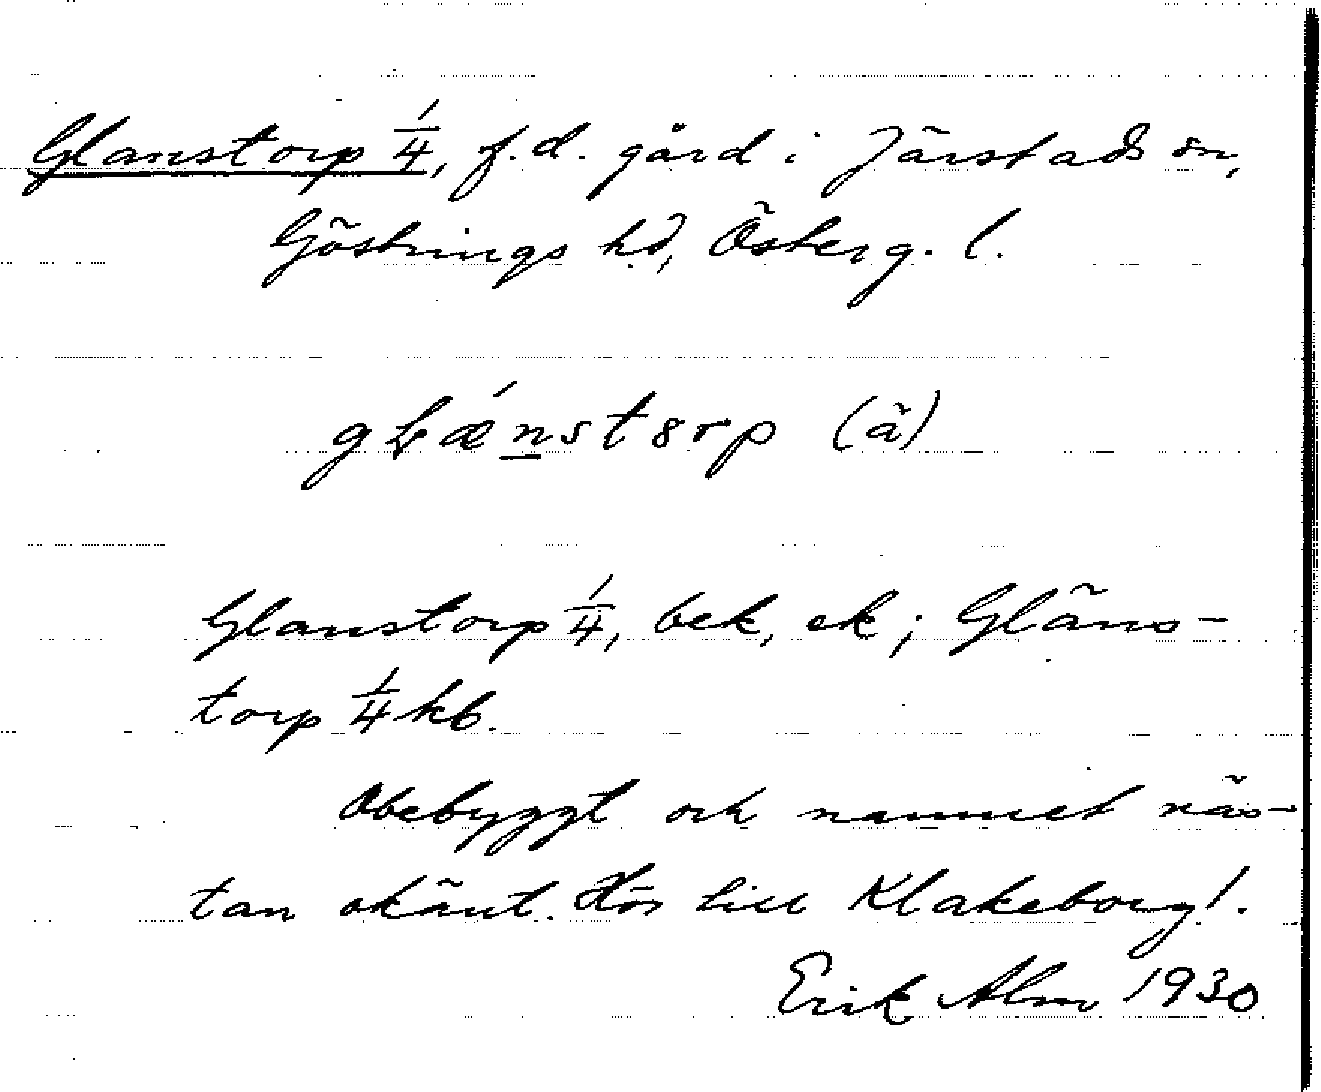 Glanstorp 1/4, f.d. gård i Järstads sn,
Göstrings hd, Österg. l.
gLǽnstorp (ä)
Glanstorp 1/4, bek, ek; Gläns-
torp 1/4 kb.
Obebyggt och namnet näs-
tan okänt. Hör till Klakeborg!.
Erik Alm 1930